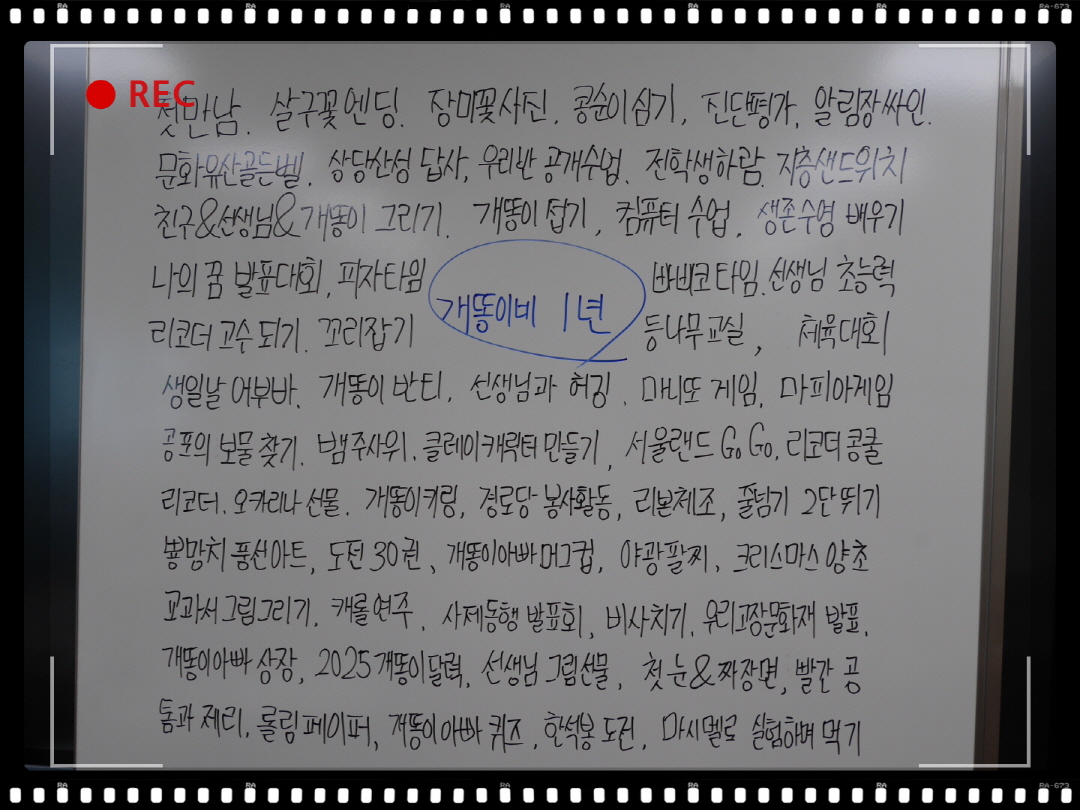 REC
첫만남. 살구꽃엔딩. 장미꽃사진, 콩순이심기, 진단평가, 알림장싸인.
문화유산골든벨. 상당산성 답사, 우리반 공개수업. 전학생하람. 지층샌드위치
친구&선생님&개똥이 그리기. 개똥이접기, 컴퓨터 수업, 생존수영 배우기
나의 꿈 발표대회, 피자타임 빠삐코타임. 선생님 초능력
개똥이네 1년
리코더 고수 되기. 꼬리잡기 등나무교실, 체육대회
생일날 어부바. 개똥이 반티, 선생님과 허깅. 마니또 게임, 마피아게임
공포의 보물찾기. 뱀주사위. 클레이캐릭터 만들기, 서울랜드 GoGo. 리코더콩쿨
리코더. 오카리나 선물. 개똥이키링, 경로당 봉사활동, 리본체조, 줄넘기 2단뛰기
뿅망치 풍선아트, 도전 30권, 개똥이아빠머그컵, 야광팔찌, 크리스마스 양초
교과서그림그리기. 캐롤연주. 사제동행 발표회, 비사치기. 우리고장문화재 발표.
개똥이아빠 상장, 2025개똥이달력, 선생님 그림선물, 첫눈&짜장면, 빨간 공
톰과 제리, 롤링페이퍼, 개똥이아빠 퀴즈, 한석봉도전, 마시멜로 실험하며 먹기